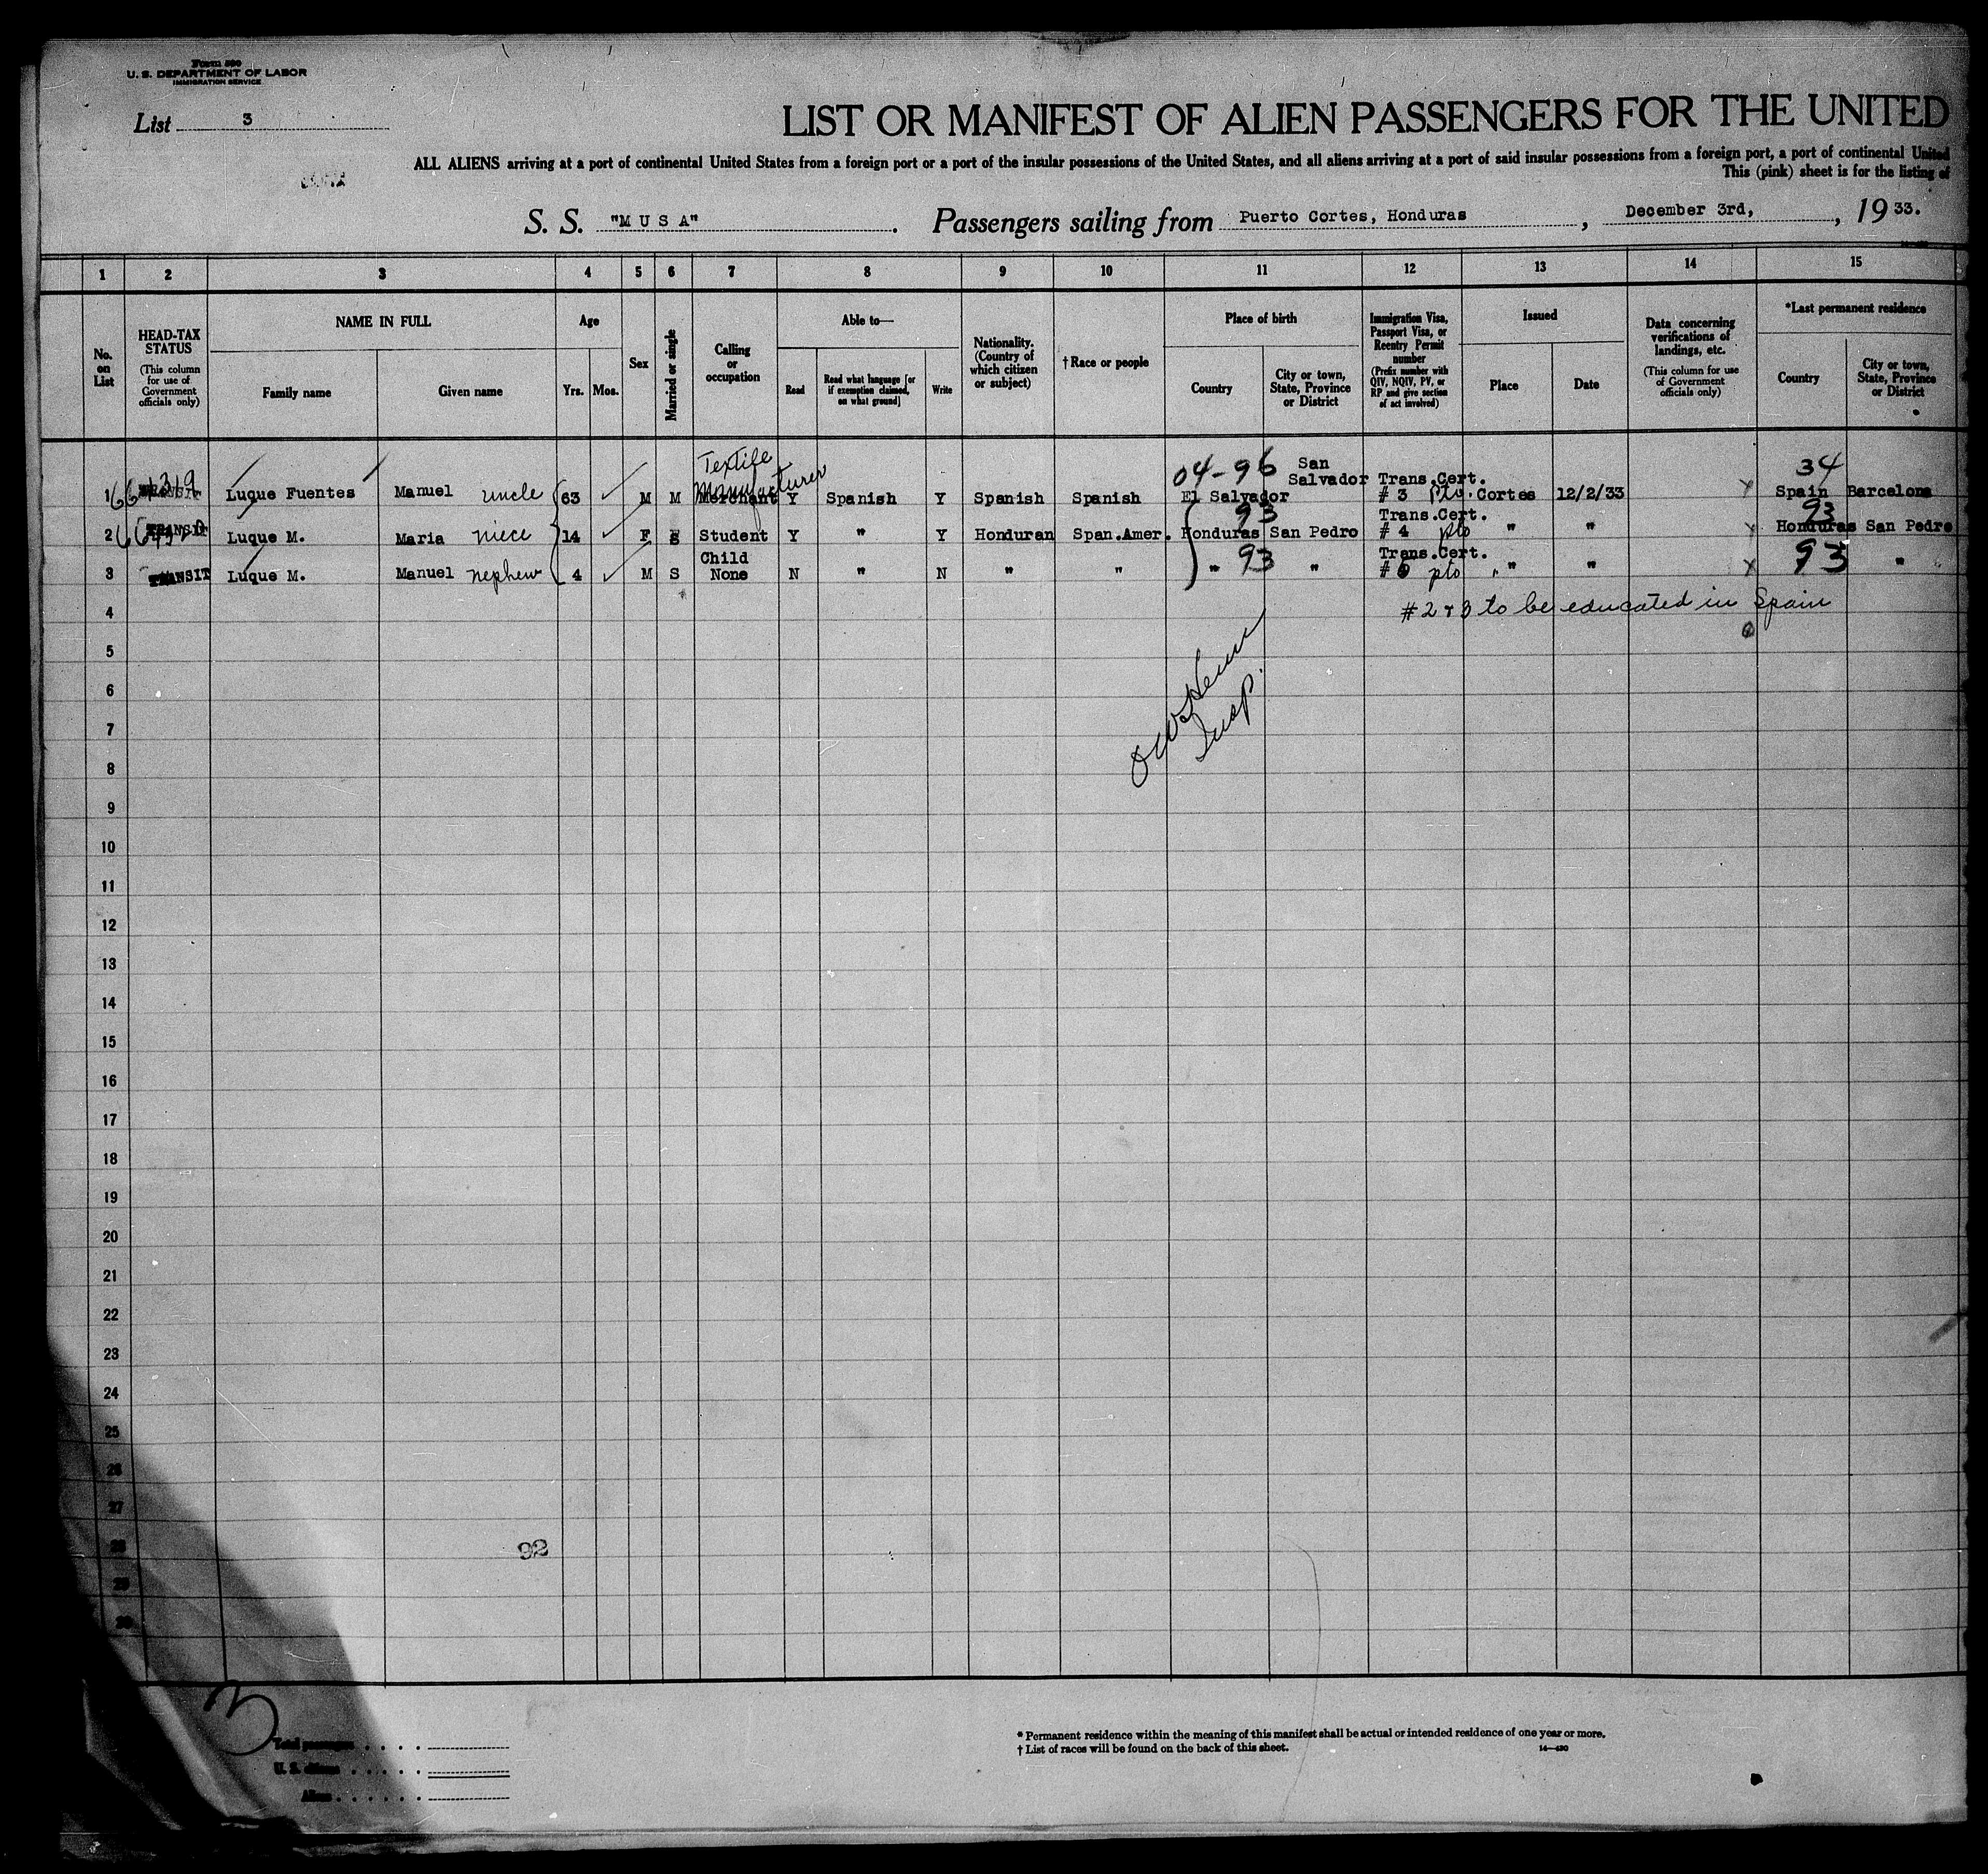 Form 500
U. S. DEPARTMENT OF LABOR
IMMIGRATION SERVICE
List 3
LIST OR MANIFEST OF ALIEN PASSENGERS FOR THE UNITED
ALL ALIENS arriving at a port of continental United States from a foreign port or a port of the insular possessions of the United States, and all aliens arriving at a port of said insular possessions from a foreign port, a port of continental United
This (pink) sheet is for the listing of
S. S. "M U S A" . Passengers sailing from Puerto Cortes, Honduras , December 3rd, , 19 33.
1 2 3 4 5 6 7 8 9 10 11 12 13 14 15
No. on List
HEAD-TAX STATUS
(This column for use of Government officials only)
NAME IN FULL
Family name
Given name
Age
Yrs. Mos.
Sex
Married or single
Calling or occupation
Able to—
Read
Read what language [or if exemption claimed, on what ground]
Write
Nationality. (Country of which citizen or subject)
† Race or people
Place of birth
Country
City or town, State, Province or District
Immigration Visa, Passport Visa, or Reentry Permit number
(Prefix number with QIV, NQIV, PV, or RP and give section of act involved)
Issued
Place
Date
Data concerning verifications of landings, etc.
(This column for use of Government officials only)
*Last permanent residence
Country
City or town, State, Province or District
Textile Manufacturer
04-96 San Salvador Trans.Cert. 34
1 TRANSIT Luque Fuentes Manuel uncle 63 M M Merchant Y Spanish Y Spanish Spanish El Salvador # 3 Pto. Cortes 12/2/33 Spain Barcelona
93 Trans.Cert. 93
2 TRANSIT Luque M. Maria niece 14 F S Student Y " Y Honduran Span.Amer. Honduras San Pedro # 4 pto " " Honduras San Pedro
Child Trans.Cert.
3 TRANSIT Luque M. Manuel nephew 4 M S None N " N " " " 93 " # pto " " 93 "
4 #2 & 3 to be educated in Spain
5
6
7
Insp.
8
9
10
11
12
13
14
15
16
17
18
19
20
21
22
23
24
25
26
27
28
92
29
30
3
Total passengers
U. S. citizens
Aliens
* Permanent residence within the meaning of this manifest shall be actual or intended residence of one year or more.
† List of races will be found on the back of this sheet.